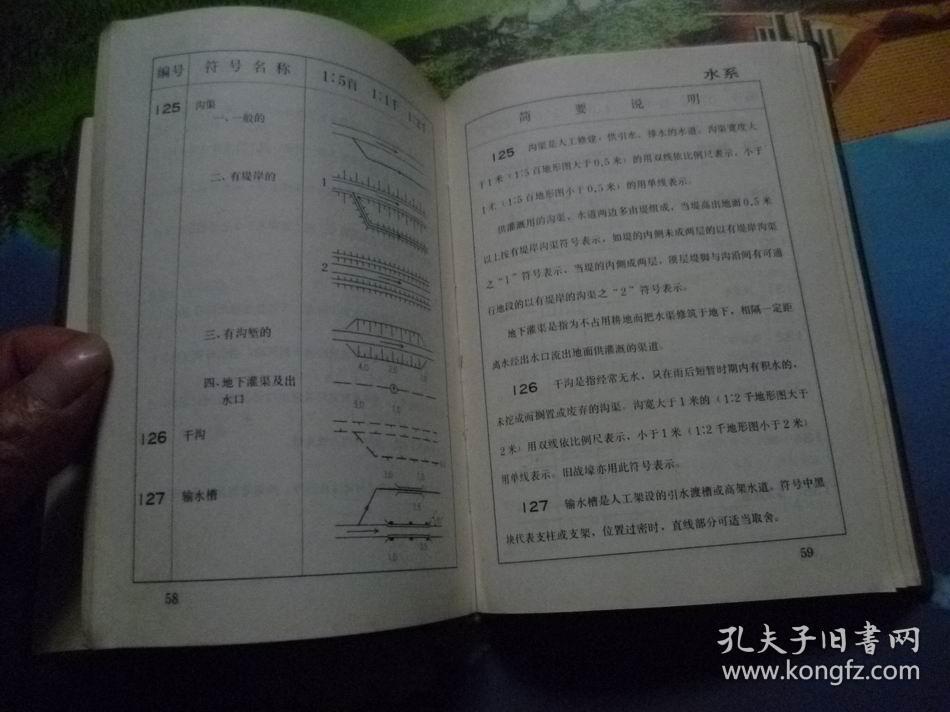 编号 符号名称 1:5百 1:1千 1:2千
125 沟渠
一、一般的
二、有堤岸的
1
2
三、有沟堑的
4.0 2.0 1.0
四、地下灌渠及出
水口
5.0 1.0
126 干沟
3.0 1.0
127 输水槽
1.0
58
水系
简要说明
125 沟渠是人工修建,供引水、排水的水道。沟渠宽度大
于1米(1:5百地形图大于0.5米)的用双线依比例尺表示,小于
1米(1:5百地形图小于0.5米)的用单线表示。
供灌溉用的沟渠,水道两边多由堤组成,当堤高出地面0.5米
以上按有堤岸沟渠符号表示,如堤的内侧未成两层的以有堤岸沟渠
之“1”符号表示,当堤的内侧成两层,顶层堤脚与沟沿间有可通
行地段的以有堤岸的沟渠之“2”符号表示。
地下灌渠是指为不占用耕地而把水渠修筑于地下,相隔一定距
离水经出水口流出地面供灌溉的渠道。
126 干沟是指经常无水,只在雨后短暂时期内有积水的,
未挖成而搁置或废弃的沟渠。沟宽大于1米的(1:2千地形图大于
2米)用双线依比例尺表示,小于1米(1:2千地形图小于2米)
用单线表示。旧战壕亦用此符号表示。
127 输水槽是人工架设的引水渡槽或高架水道。符号中黑
块代表支柱或支架,位置过密时,直线部分可适当取舍。
59
孔夫子旧書网
www.kongfz.com